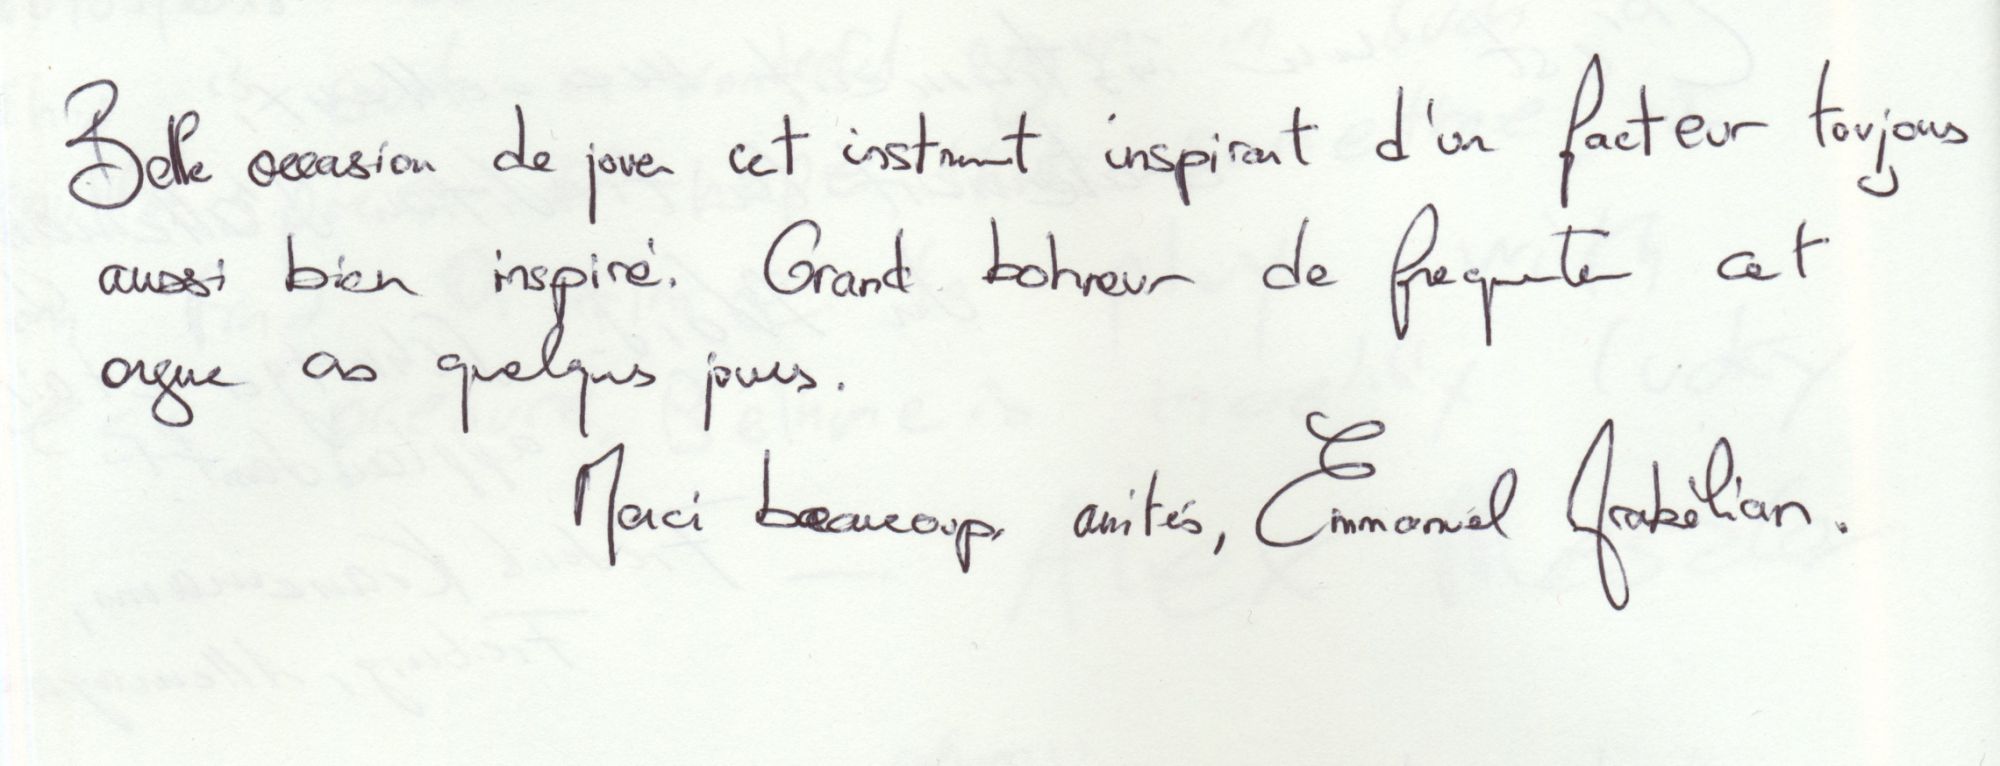 Belle occasion de jouer cet instrument inspirant d'un facteur toujours
aussi bien inspiré. Grand bonheur de frequenter cet
orgue ces quelques jours.
Merci beaucoup, amitiés, Emmanuel Arakélian.